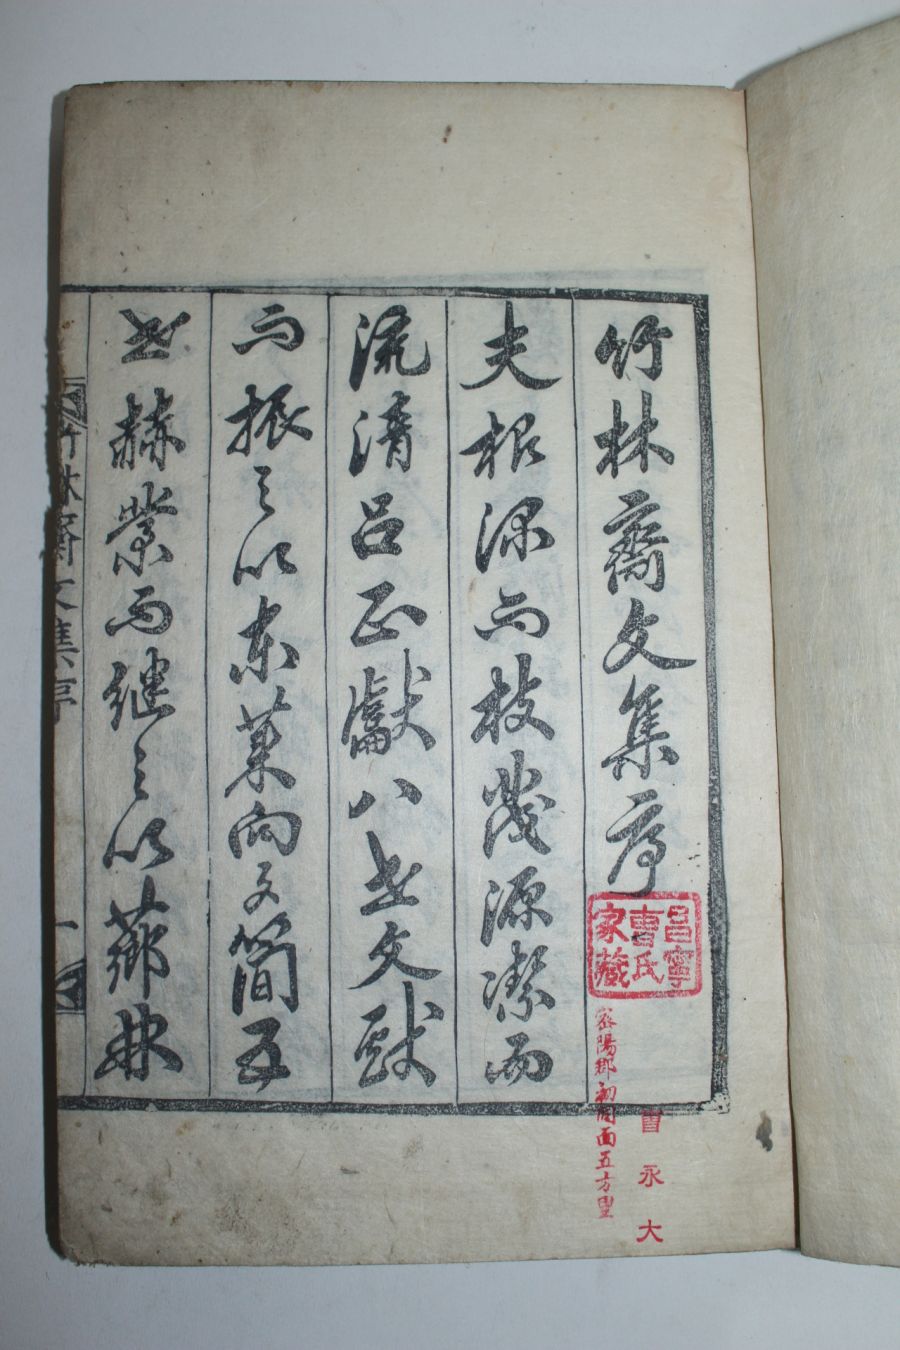 竹林齋文集序
夫根深而枝茂源潔而
流清呂正獻八世文猷
而振之以東萊向文簡五
世赫業而繼之以薌林
竹林齋文集序 一
昌寧
曺氏
家藏
密陽郡初同面五方里
曺永大